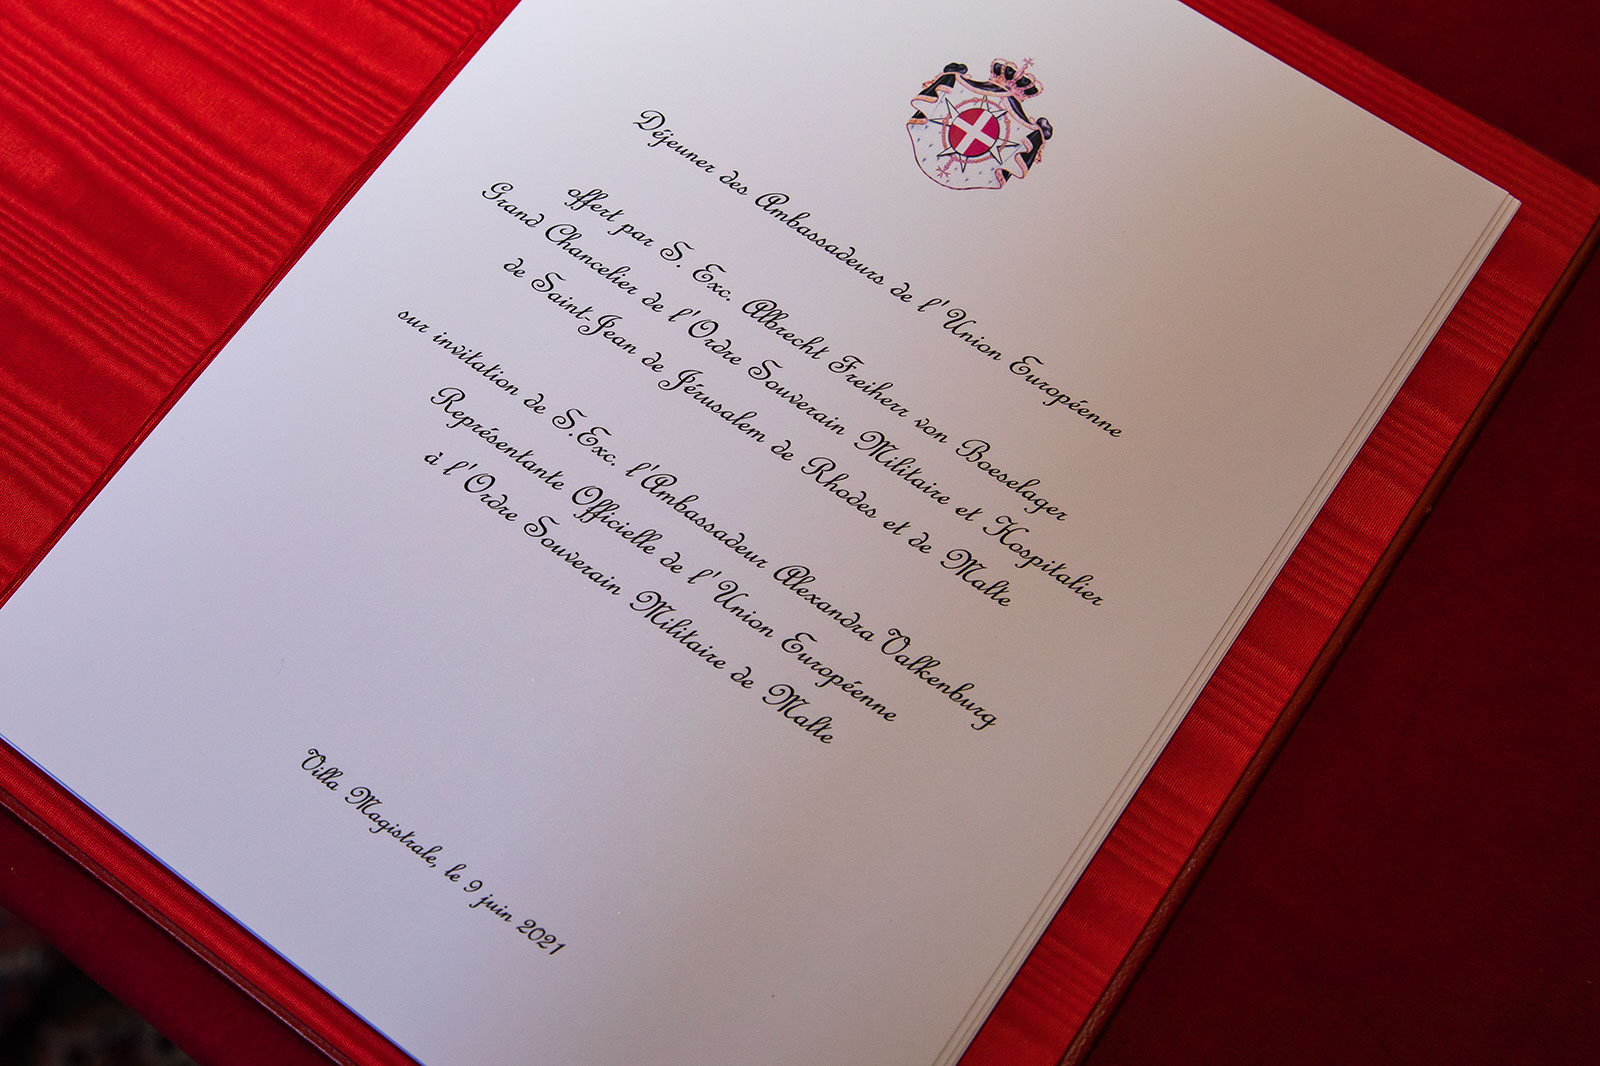 Déjeuner des Ambassadeurs de l'Union Européenne
offert par S. Exc. Albrecht Freiherr von Boeselager
Grand Chancelier de l'Ordre Souverain Militaire et Hospitalier
de Saint-Jean de Jérusalem de Rhodes et de Malte
sur invitation de S.Exc. l'Ambassadeur Alexandra Valkenburg
Représentante Officielle de l'Union Européenne
à l'Ordre Souverain Militaire de Malte
Villa Magistrale, le 9 juin 2021